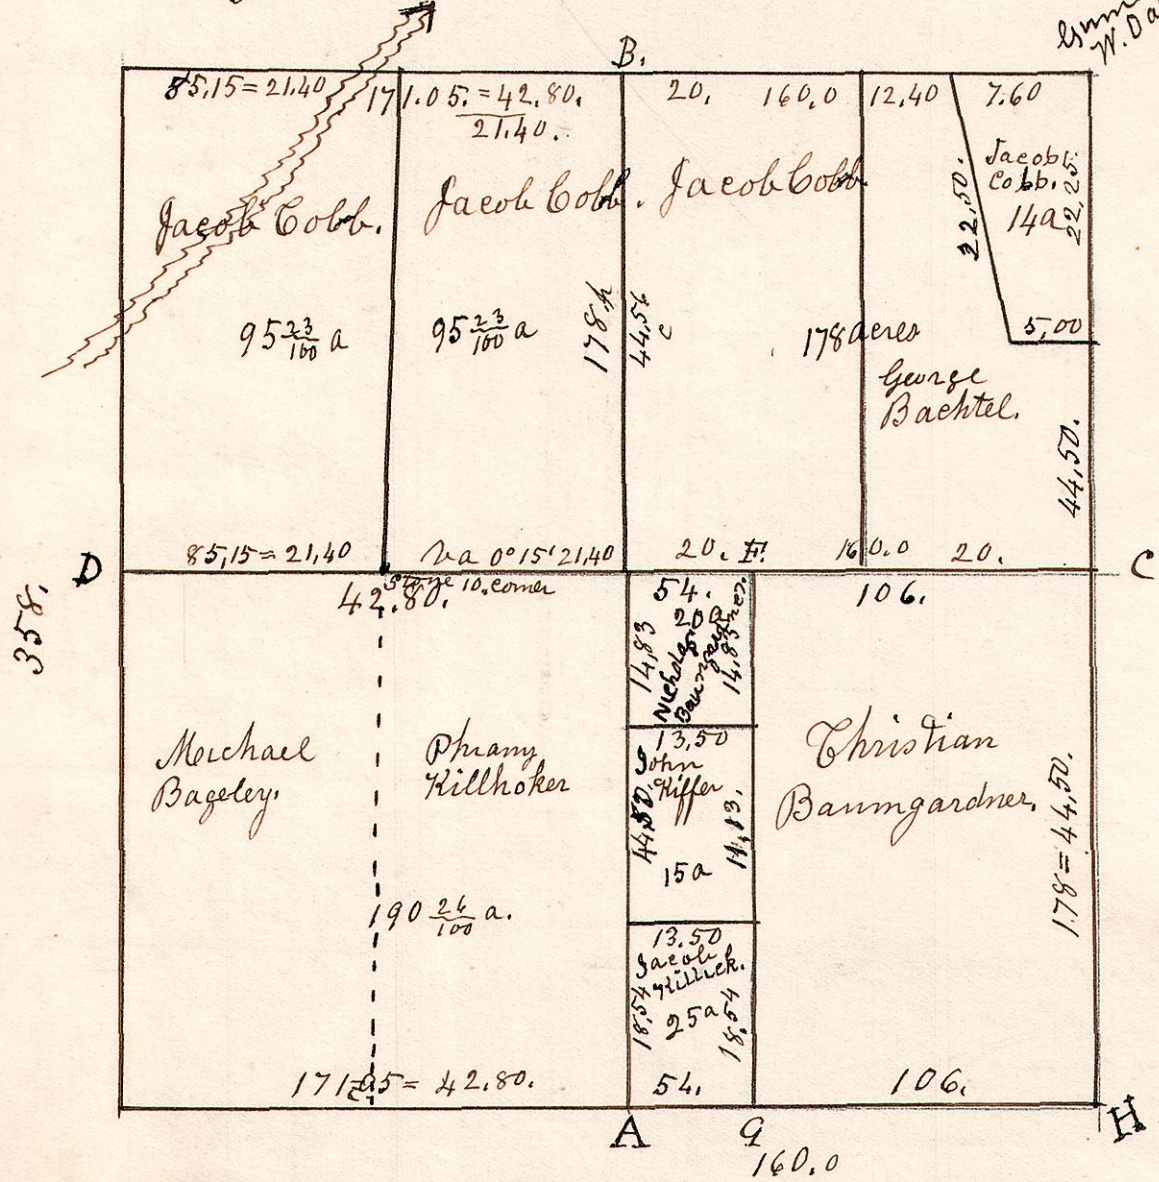 B.
85,15 = 21.40
171.05. = 42.80.
21.40.
20. 160.0
12,40
7.60
Jacob Cobb.
Jacob Cobb.
Jacob Cobb
22,50.
Jacob
Cobb.
14a
22,25
95 23/100 a
95 23/100 a
178 p
44,5
c
178 acres
5,00
George
Bachtel.
44,50.
D
85,15 = 21,40
Va 0° 15' 21,40
20. F.
160.0 20.
C
358.
42.80.
Stone 10. corner
54.
20
Nicholas
Baumgardner.
14,83
14,83
106.
Michael
Bageley.
Phrany
Killhoker
190 24/100 a.
13,50
John
Kiffer
15a
Christian
Baumgardner.
178 = 44,50.
13.50
Jacob
25a
18.54
18.54
= 42.80.
54.
106.
A
G
H
160.0